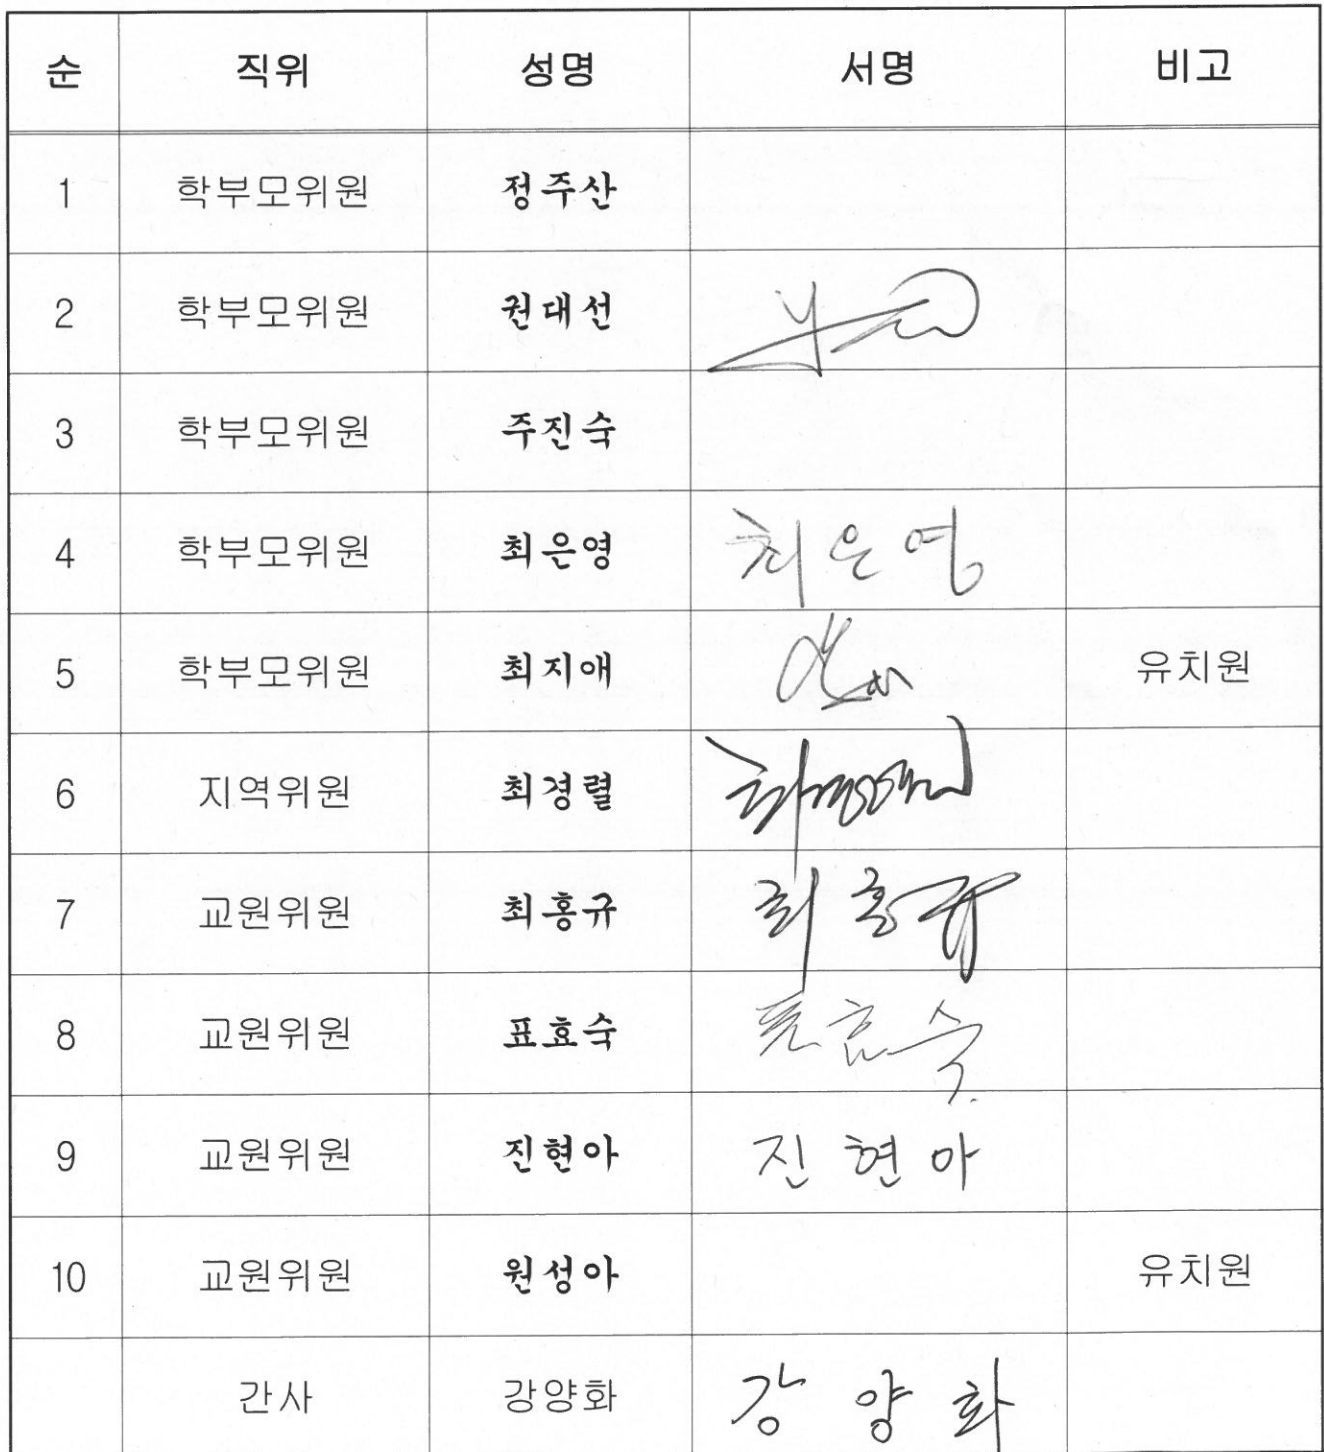 순 직위 성명 서명 비고
1 학부모위원 정주산
2 학부모위원 권대선
3 학부모위원 주진숙
4 학부모위원 최은영 최은영
5 학부모위원 최지애 유치원
6 지역위원 최경렬 최경렬
7 교원위원 최홍규 최홍규
8 교원위원 표효숙 표효숙
9 교원위원 진현아 진현아
10 교원위원 원성아 유치원
간사 강양화 강양화